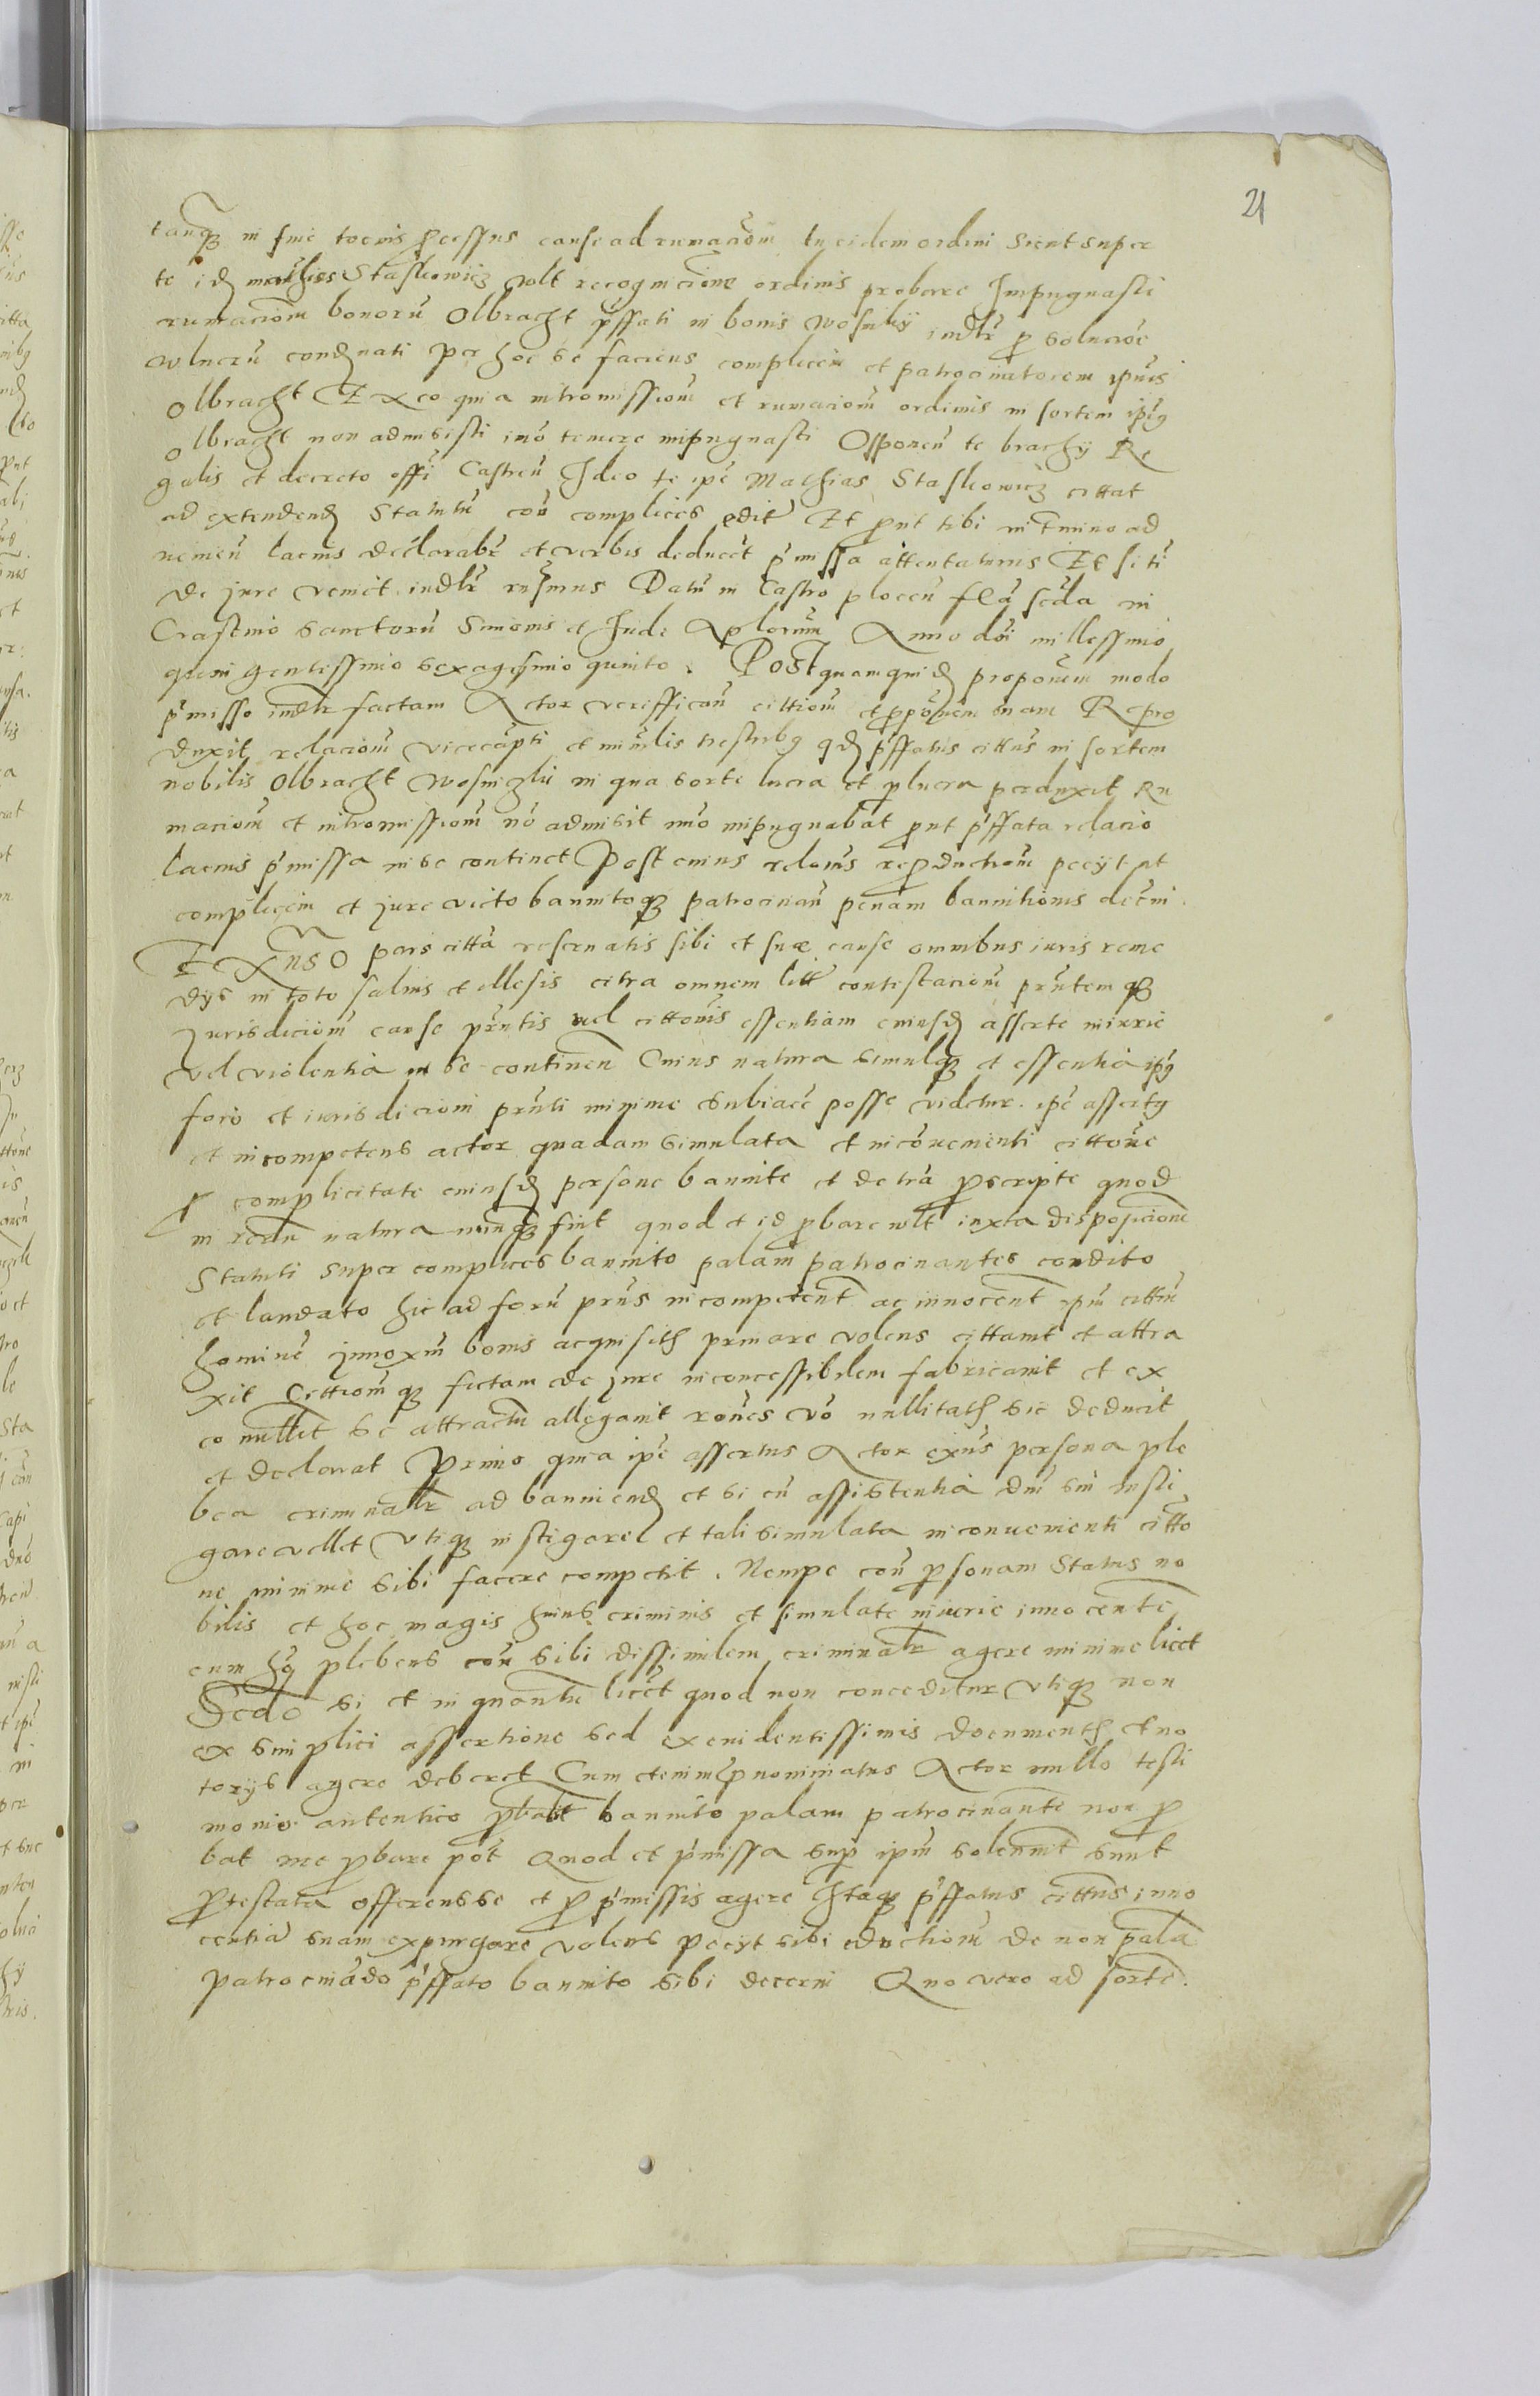 21
tanq̃ in fine tocius p̃cessus cause ad rumaciõm tu eidem ordini sicut super
te idẽ mathias Staskowicz vult recognicione ordinis probare Impugnasti
rumaciõm bonorũ Olbracht p̃ffati in bonis wosniky indr̃ p solucioẽ
vulnerũ condẽnati per hoc te faciens complicem et patrocinatorem ipsius
Olbracht Ex eo quia intromissiom̃ et rumaciom̃ ordinis in sortem ipiꝰ
Olbracht non admisisti imo temere impugnasti Opponen̄ te brachy Re
galis et decreto offi Castren̄ Ideo te ipe Mathias Staskowicz cittat
ad extendend Statutũ con̄ complices edit̃ Et prout tibi in tr̃mino ad
nemen̄ lacius declarabr̃ et verbis deducet p̃missa attentaturus Et si ti
de jure venit indr̃ rñsurus Datũ in Castro plocen̄ fr̃a scd̃a in
Crastino sanctorũ Simonis et Jude Apl̃orum Anno dñi millessimo
quingentissimo sexagesimo quinto. Postquamquidẽ propoñem modo
p̃misso indr̃ factam Actor verifficañ cittiom̃ et propoñem suam Repro
duxit relaciom̃ vicecapti et mĩlis trestribꝰ qd p̃ffatus cittus in sortem
nobilis Olbracht wosniczki in qua sorte lucra et p̃lucra perduxit Ru
maciom̃ et intromissiom̃ no admisit imo impugnabat prout p̃ffata relacio
lacius p̃missa in se continet Post cuius reloñis reproductiom̃ peciit ut
complicem et jure victo bannitoq̃ patrocinañ penam bannitionis decr̃ni.
Ex aduso pars citta reseruatis sibi et suæ cause omnibus iuris reme
dys in toto saluis et illesis citra omnem litt̃ contestaciom̃ prñtemq̃
Jurisdiciom̃ cause prñtis vel cittonis essentiam eiusdẽ asserte iniurie
vel violentia in se continen Cuius natura simulq̃ et essentia ipiꝰ
foro et iurisdicioni prñti minime subiacẽ posse videtur. ipe assertꝰ
et incompetens actor quadam simulata et incoñuenienti cittoñe
p̃ complicitate eiusdẽ persone bannite et de tr̃a proscripte quod
in rerũ natura nunq̃ fuit quod et id p̃bare vult iuxta dispositione
Statuti super complices bannito palam patrocinantes condito
et laudato hic ad forũ prñs incompetent̃ ac innocent̃ ipũ cittũ
hominẽ Innoxiũ bonis acquisitis priuare volens cittauit et attra
xit Cittiom̃q̃ fictam de jure inconcessibilem fabricauit et ex
eo nullit̃ se attractũ allegauit roñes vo nullitatis sic deducit
et declarat Primo quia ipe assertus Actor exñs persona ple
bea criminalr̃ ad banniend et si cũ assistentia dñi sui insti
gare vellet Utiq̃ instigare et tali simulata inconuenienti citto
ne minime sibi facere competit. Nempe con̄ p̃sonam Status no
bilis et hoc magis huius criminis et simulate iniurie innocente
cum hꝰ plebens con̄ sibi dissimilem criminalr̃ agere minime licet
Scdo si et in quantũ licet quod non conceditur Utiq̃ non
ex simplici assertione sed ex euidentissimis documentis et no
torys agere deberet Cum etenim p̃nominatus Actor nullo testi
monio autentico p̃babit bannito palam patrocinante non p̃
bat nec p̃bare pot Quod et p̃missa sup ipm̃ solennit̃ sunt
p̃testata offerens se et p̃ p̃missis agere Itaq̃ p̃ffatus cittus inno
centia suam expurgare volens peciit sibi eductiom̃ de non pala
patrocinãdo p̃ffato bannito sibi decerni Quo vero ad sorte.